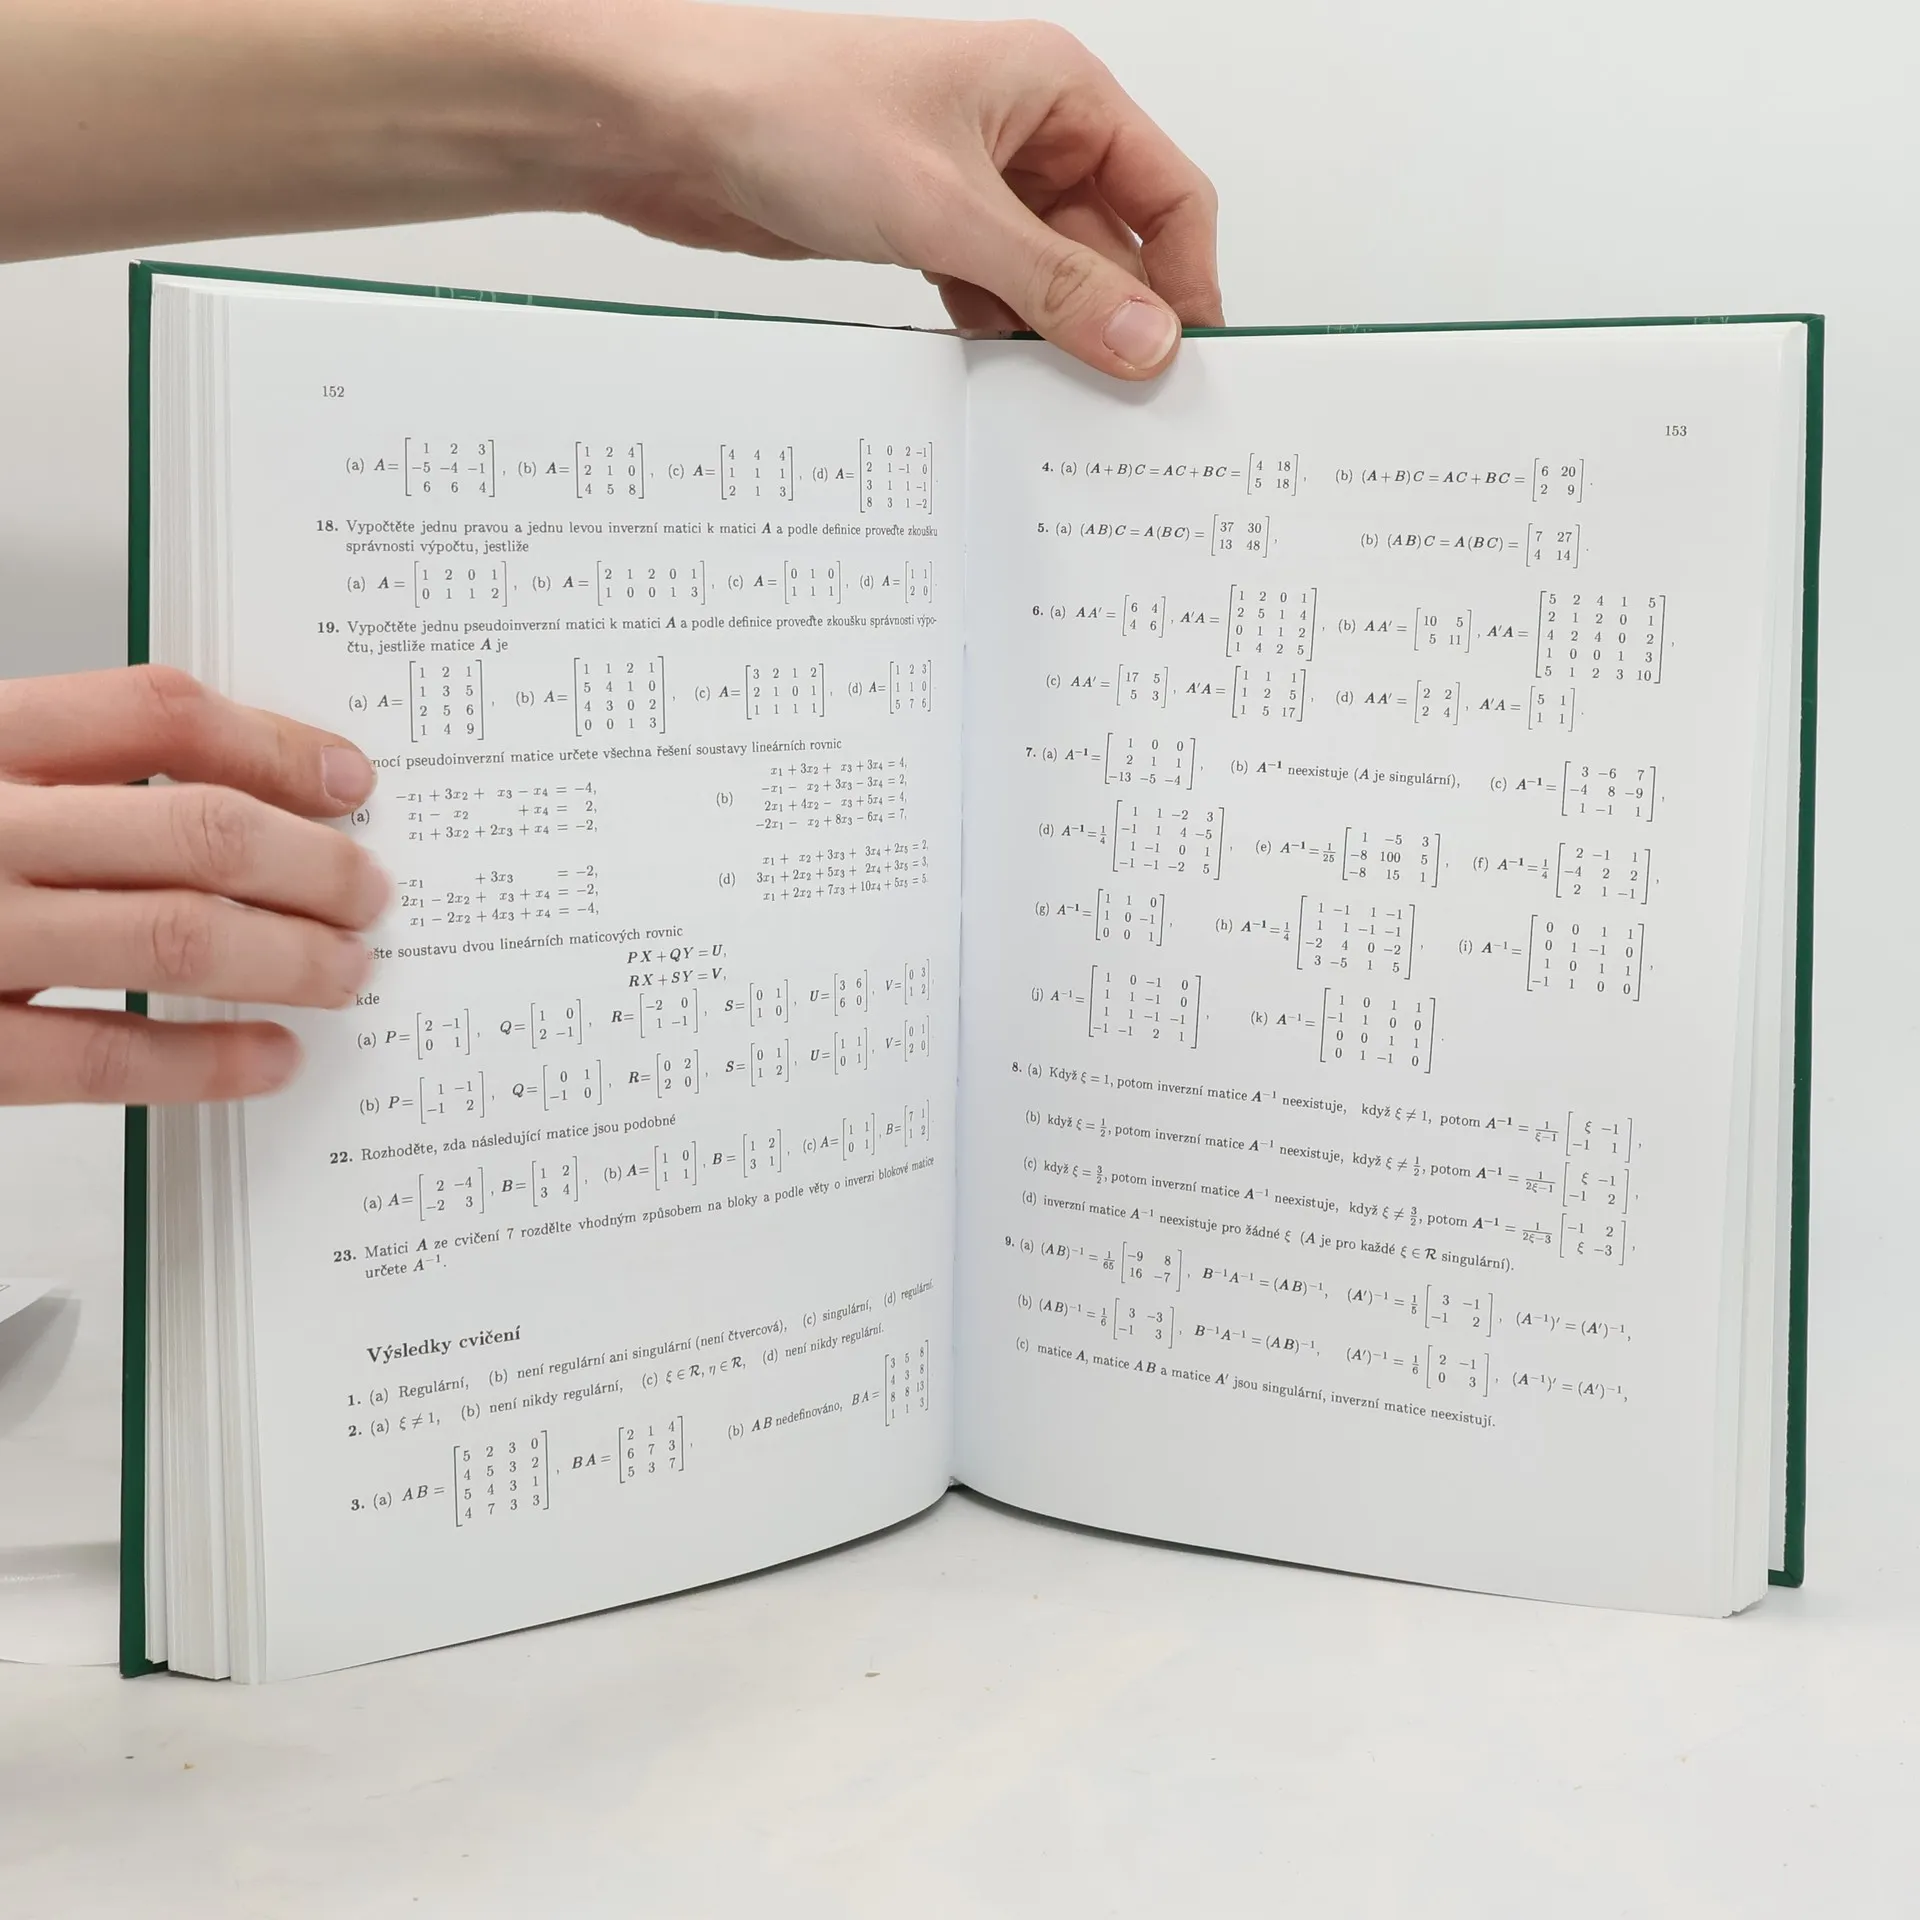 152
(a) A = [1 2 3; -5 -4 -1; 6 6 4], (b) A = [1 2 4; 2 1 0; 4 5 8], (c) A = [4 4 4; 1 1 1; 2 1 3], (d) A = [1 0 2 -1; 2 1 -1 0; 3 1 1 -1; 8 3 1 -2].
18. Vypočtěte jednu pravou a jednu levou inverzní matici k matici A a podle definice proveďte zkoušku
správnosti výpočtu, jestliže
(a) A = [1 2 0 1; 0 1 1 2], (b) A = [2 1 2 0 1; 1 0 0 1 3], (c) A = [0 1 0; 1 1 1], (d) A = [1 1; 2 0].
19. Vypočtěte jednu pseudoinverzní matici k matici A a podle definice proveďte zkoušku správnosti výpo-
čtu, jestliže matice A je
(a) A = [1 2 1; 1 3 5; 2 5 6; 1 4 9], (b) A = [1 1 2 1; 5 4 1 0; 4 3 0 2; 0 0 1 3], (c) A = [3 2 1 2; 2 1 0 1; 1 1 1 1], (d) A = [1 2 3; 1 1 0; 5 7 6].
mocí pseudoinverzní matice určete všechna řešení soustavy lineárních rovnic
(a) -x1 + 3x2 + x3 - x4 = -4,
x1 - x2 + x4 = 2,
x1 + 3x2 + 2x3 + x4 = -2,
(b) x1 + 3x2 + x3 + 3x4 = 4,
-x1 - x2 + 3x3 - 3x4 = 2,
2x1 + 4x2 - x3 + 5x4 = 4,
-2x1 - x2 + 8x3 - 6x4 = 7,
-x1 + 3x3 = -2,
2x1 - 2x2 + x3 + x4 = -2,
x1 - 2x2 + 4x3 + x4 = -4,
(d) x1 + x2 + 3x3 + 3x4 + 2x5 = 2,
3x1 + 2x2 + 5x3 + 2x4 + 3x5 = 3,
x1 + 2x2 + 7x3 + 10x4 + 5x5 = 5.
ešte soustavu dvou lineárních maticových rovnic
PX + QY = U,
RX + SY = V,
kde
(a) P = [2 -1; 0 1], Q = [1 0; 2 -1], R = [-2 0; 1 -1], S = [0 1; 1 0], U = [3 6; 6 0], V = [0 3; 1 2],
(b) P = [1 -1; -1 2], Q = [0 1; -1 0], R = [0 2; 2 0], S = [0 1; 1 2], U = [1 1; 0 1], V = [0 1; 2 0].
22. Rozhoděte, zda následující matice jsou podobné
(a) A = [2 -4; -2 3], B = [1 2; 3 4], (b) A = [1 0; 1 1], B = [1 2; 3 1], (c) A = [1 1; 0 1], B = [7 1; 1 2].
23. Matici A ze cvičení 7 rozdělte vhodným způsobem na bloky a podle věty o inverzi blokové matice
určete A⁻¹.
Výsledky cvičení
1. (a) Regulární, (b) není regulární ani singulární (není čtvercová), (c) singulární, (d) regulární.
2. (a) ξ ≠ 1, (b) není nikdy regulární, (c) ξ ∈ R, η ∈ R, (d) není nikdy regulární.
3. (a) AB = [5 2 3 0; 4 5 3 2; 5 4 3 1; 4 7 3 3], BA = [2 1 4; 6 7 3; 5 3 7], (b) AB nedefinováno, BA = [3 5 8; 4 3 8; 8 8 13; 1 1 3].
153
4. (a) (A+B)C = AC+BC = [4 18; 5 18], (b) (A+B)C = AC+BC = [6 20; 2 9].
5. (a) (AB)C = A(BC) = [37 30; 13 48], (b) (AB)C = A(BC) = [7 27; 4 14].
6. (a) AA′ = [6 4; 4 6], A′A = [1 2 0 1; 2 5 1 4; 0 1 1 2; 1 4 2 5], (b) AA′ = [10 5; 5 11], A′A = [5 2 4 1 5; 2 1 2 0 1; 4 2 4 0 2; 1 0 0 1 3; 5 1 2 3 10],
(c) AA′ = [17 5; 5 3], A′A = [1 1 1; 1 2 5; 1 5 17], (d) AA′ = [2 2; 2 4], A′A = [5 1; 1 1].
7. (a) A⁻¹ = [1 0 0; 2 1 1; -13 -5 -4], (b) A⁻¹ neexistuje (A je singulární), (c) A⁻¹ = [3 -6 7; -4 8 -9; 1 -1 1],
(d) A⁻¹ = 1/4 [1 1 -2 3; -1 1 4 -5; 1 -1 0 1; -1 -1 -2 5], (e) A⁻¹ = 1/25 [1 -5 3; -8 100 5; -8 15 1], (f) A⁻¹ = 1/4 [2 -1 1; -4 2 2; 2 1 -1],
(g) A⁻¹ = [1 1 0; 1 0 -1; 0 0 1], (h) A⁻¹ = 1/4 [1 -1 1 -1; 1 1 -1 -1; -2 4 0 -2; 3 -5 1 5], (i) A⁻¹ = [0 0 1 1; 0 1 -1 0; 1 0 1 1; -1 1 0 0],
(j) A⁻¹ = [1 0 -1 0; 1 1 -1 0; 1 1 -1 -1; -1 -1 2 1], (k) A⁻¹ = [1 0 1 1; -1 1 0 0; 0 0 1 1; 0 1 -1 0].
8. (a) Když ξ = 1, potom inverzní matice A⁻¹ neexistuje, když ξ ≠ 1, potom A⁻¹ = 1/(ξ-1) [ξ -1; -1 1],
(b) když ξ = 1/2, potom inverzní matice A⁻¹ neexistuje, když ξ ≠ 1/2, potom A⁻¹ = 1/(2ξ-1) [ξ -1; -1 2],
(c) když ξ = 3/2, potom inverzní matice A⁻¹ neexistuje, když ξ ≠ 3/2, potom A⁻¹ = 1/(2ξ-3) [-1 2; ξ -3],
(d) inverzní matice A⁻¹ neexistuje pro žádné ξ (A je pro každé ξ ∈ R singulární).
9. (a) (AB)⁻¹ = 1/65 [-9 8; 16 -7], B⁻¹A⁻¹ = (AB)⁻¹, (A′)⁻¹ = 1/5 [3 -1; -1 2], (A⁻¹)′ = (A′)⁻¹,
(b) (AB)⁻¹ = 1/6 [3 -3; -1 3], B⁻¹A⁻¹ = (AB)⁻¹, (A′)⁻¹ = 1/6 [2 -1; 0 3], (A⁻¹)′ = (A′)⁻¹,
(c) matice A, matice AB a matice A′ jsou singulární, inverzní matice neexistují.